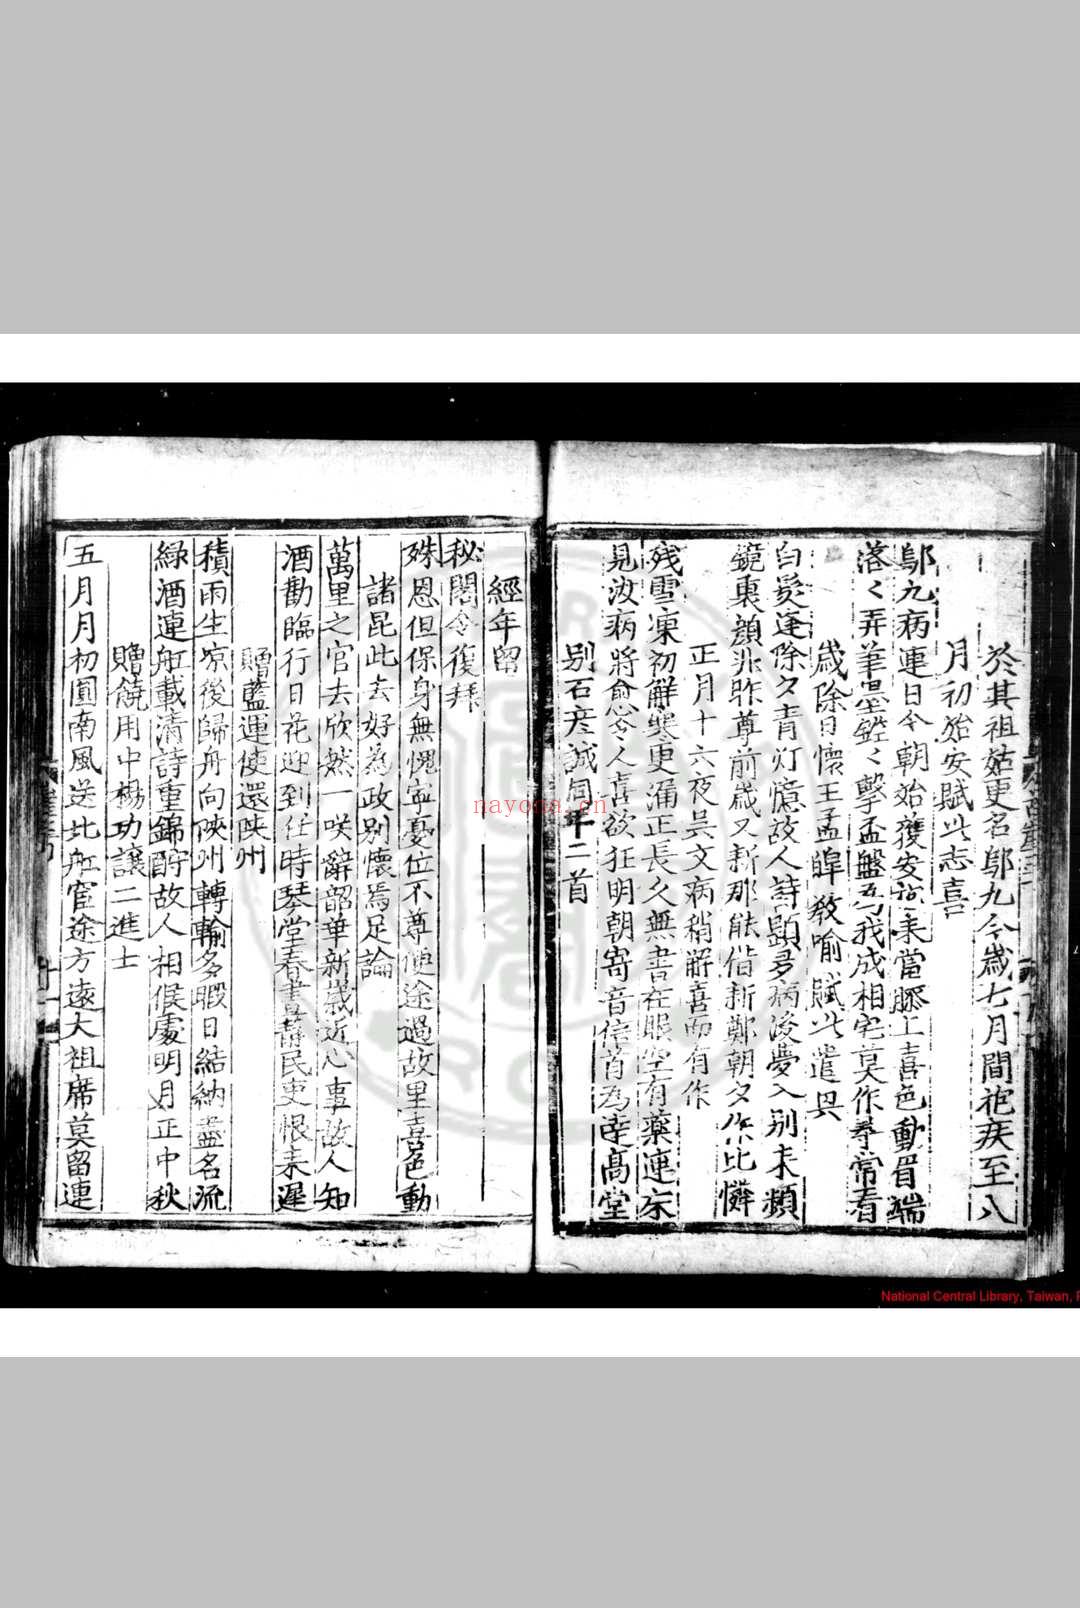 於其祖姑更名鄔九今歲七月間疱疾至八
月初始安賦此志喜
鄔九病連日今朝始獲安
當膝上喜色動眉端
落〻弄筆墨鏗〻擊盃盤
我成相宅莫作尋常看
歲除日懷王孟 教諭賦此遣
白髮逢除夕青灯憶故人詩
多病後夢入别未頻
鏡裏顔非昨尊前歲又新那能偕新鄭朝夕
比憐
正月十六夜吴文病稍解喜而有作
残雪凍初解寒更涌正長久無書在眼空有藥連床
見汝病將愈令人喜欲狂明朝寄音信首為達髙堂
别石彦誠同年二首
經年留
秘閣今復拜
殊恩但保身無愧寧憂位不尊使途過故里喜色動
諸昆此去好為政别懐焉足論
萬里之官去欣然一咲辭韶華新歲近心事故人知
酒勸臨行日花迎到任時琴堂春晝静民吏恨来遲
贈藍運使還陕州
積雨生凉後歸舟向陕州轉輸多暇日結納盡名流
緑酒連舡載清詩重錦酧故人相候處明月正中秋
贈饒用中楊功讓二進士
五月月初圓南風送北舡宦途方遠大祖席莫留連
nayona.cn
National Central Library, Taiwan,